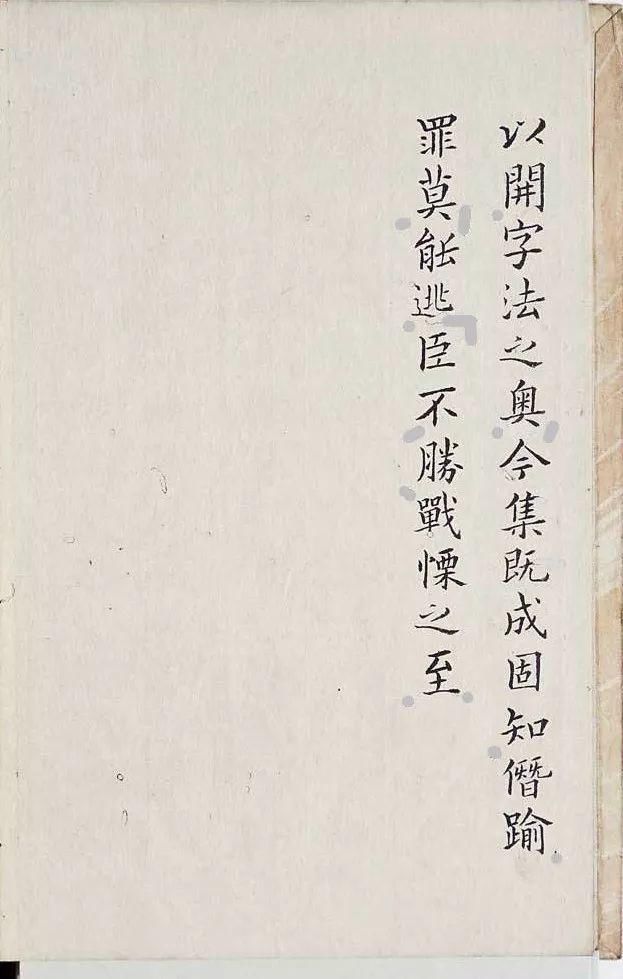 以開字法之奥今集既成固知僭踰
罪莫能逃臣不勝戰慄之至